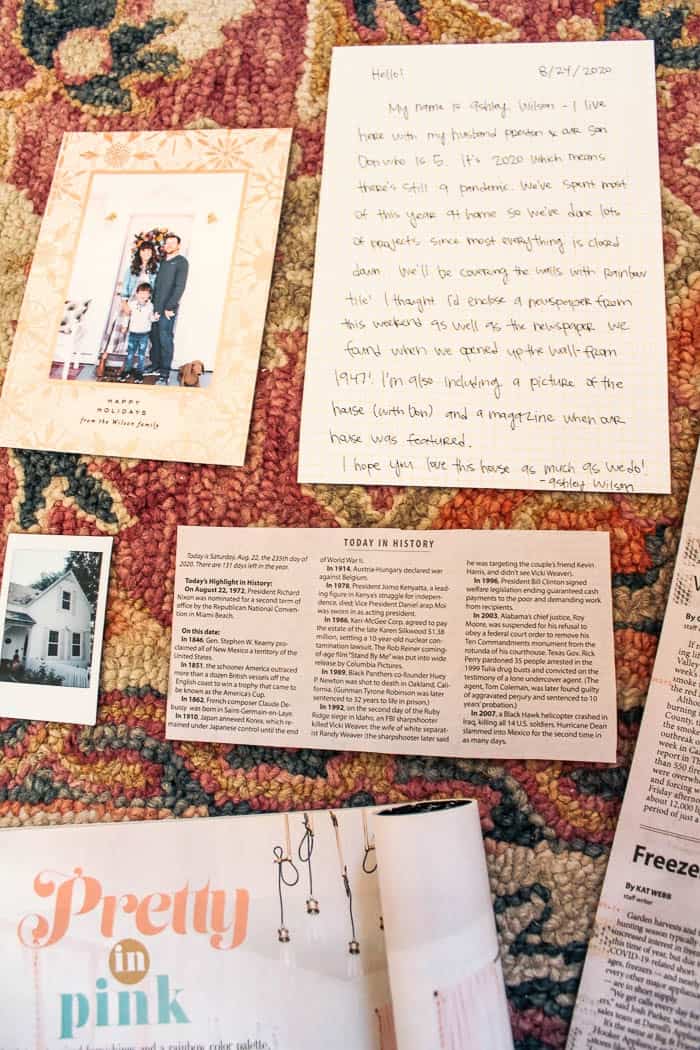 Hello! 8/24/2020
My name is Ashley Wilson - I live
here with my husband Preston & our son
Don who is 5. It's 2020 which means
there's still a pandemic. We've spent most
of this year at home so we've done lots
of projects since most everything is closed
down. We'll be covering the walls with rainbow
tile! I thought I'd enclose a newspaper from
this weekend as well as the newspaper we
found when we opened up the wall - from
1947! I'm also including a picture of the
house (with Don) and a magazine when our
house was featured.
I hope you love this house as much as we do!
- Ashley Wilson
HAPPY
HOLIDAYS
from the Wilson family
TODAY IN HISTORY
Today is Saturday, Aug. 22, the 235th day of
2020. There are 131 days left in the year.
Today's Highlight in History:
On August 22, 1972, President Richard
Nixon was nominated for a second term of
office by the Republican National Conven-
tion in Miami Beach.
On this date:
In 1846, Gen. Stephen W. Kearny pro-
claimed all of New Mexico a territory of the
United States.
In 1851, the schooner America outraced
more than a dozen British vessels off the
English coast to win a trophy that came to
be known as the America's Cup.
In 1862, French composer Claude De-
bussy was born in Saint-Germain-en-Laye.
In 1910, Japan annexed Korea, which re-
mained under Japanese control until the end
of World War II.
In 1914, Austria-Hungary declared war
against Belgium.
In 1978, President Jomo Kenyatta, a lead-
ing figure in Kenya's struggle for indepen-
dence, died; Vice President Daniel arap Moi
was sworn in as acting president.
In 1986, Kerr-McGee Corp. agreed to pay
the estate of the late Karen Silkwood $1.38
million, settling a 10-year-old nuclear con-
tamination lawsuit. The Rob Reiner coming-
of-age film "Stand By Me" was put into wide
release by Columbia Pictures.
In 1989, Black Panthers co-founder Huey
P. Newton was shot to death in Oakland, Cali-
fornia. (Gunman Tyrone Robinson was later
sentenced to 32 years to life in prison.)
In 1992, on the second day of the Ruby
Ridge siege in Idaho, an FBI sharpshooter
killed Vicki Weaver, the wife of white separat-
ist Randy Weaver (the sharpshooter later said
he was targeting the couple's friend Kevin
Harris, and didn't see Vicki Weaver).
In 1996, President Bill Clinton signed
welfare legislation ending guaranteed cash
payments to the poor and demanding work
from recipients.
In 2003, Alabama's chief justice, Roy
Moore, was suspended for his refusal to
obey a federal court order to remove his
Ten Commandments monument from the
rotunda of his courthouse. Texas Gov. Rick
Perry pardoned 35 people arrested in the
1999 Tulia drug busts and convicted on the
testimony of a lone undercover agent. (The
agent, Tom Coleman, was later found guilty
of aggravated perjury and sentenced to 10
years' probation.)
In 2007, a Black Hawk helicopter crashed in
Iraq, killing all 14 U.S. soldiers. Hurricane Dean
slammed into Mexico for the second time in
as many days.
Pretty
in
pink
furnishings and a rainbow color palette,
If it
Valley
week's
smoke
the
Althou
burning
the smoke
outbreak
week in Ca
report in Th
than 550
were overwh
Friday afterno
about 12,000
period of just a
Freeze
By KAT WEBB
staff writer
Garden harvests and
hunting season typically
increased interest in free
this time of year, but due
COVID-19 related short
ages, freezers — and nearly
every other major appliance
— are in short supply.
"We get calls every day
ers," said Josh Parker,
sales team at Darnell's
It's the same at Big
Hooker Appliance